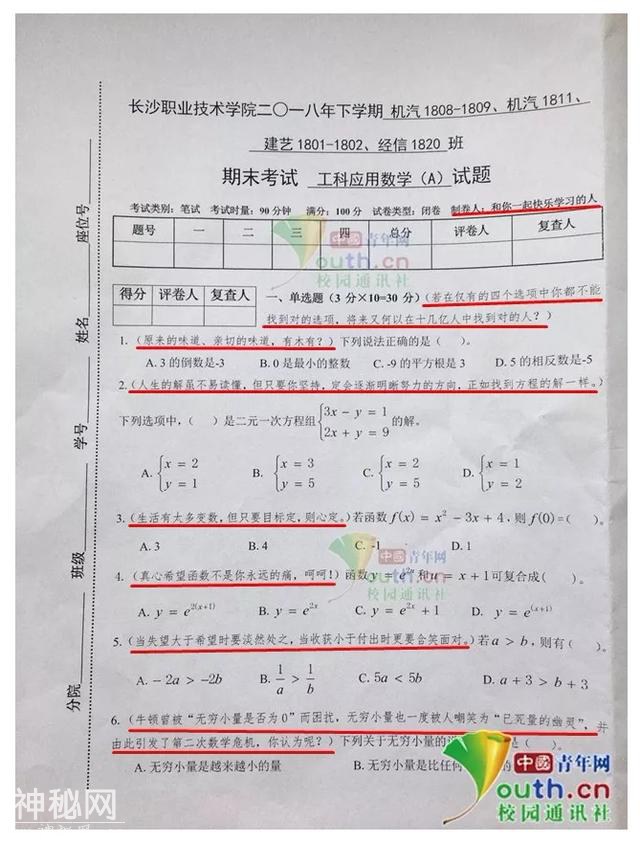 长沙职业技术学院二〇一八年下学期 机汽1808-1809、机汽1811、
建艺1801-1802、经信1820 班
期末考试 工科应用数学（A）试题
考试类别：笔试 考试时量：90分钟 满分：100分 试卷类型：闭卷 制卷人：和你一起快乐学习的人
题号 一 二 三 四 总分 评卷人 复查人
中国青年网
youth.cn
校园通讯社
得分 评卷人 复查人
一、单选题（3分×10=30分）（若在仅有的四个选项中你都不能
找到对的选项，将来又何以在十几亿人中找到对的人？）
1.（原来的味道、亲切的味道，有木有？）下列说法正确的是（ ）。
A. 3的倒数是-3 B. 0是最小的整数 C. -9的平方根是3 D. 5的相反数是-5
2.（人生的解虽不易读懂，但只要你坚持，定会逐渐明晰努力的方向，正如找到方程的解一样。）
下列选项中，（ ）是二元一次方程组{3x − y = 1 2x + y = 9 的解。
A. {x = 2 y = 1 B. {x = 3 y = 5 C. {x = 2 y = 5 D. {x = 1 y = 2
3.（生活有太多变数，但只要目标定，则心定。）若函数f(x) = x² − 3x + 4，则f(0)=（ ）。
A. 3 B. 4 C. -1 D. 1
中国青年网
youth.cn
校园通讯社
4.（真心希望函数不是你永远的痛，呵呵！）函数y = eᵘ和u = x + 1可复合成（ ）。
A. y = e²⁽ˣ⁺¹⁾ B. y = e²ˣ C. y = e²ˣ + 1 D. y = e⁽ˣ⁺¹⁾
5.（当失望大于希望时要淡然处之，当收获小于付出时更要含笑面对。）若a > b，则有（ ）。
A. −2a > −2b B. 1/a > 1/b C. 5a < 5b D. a + 3 > b + 3
6.（牛顿曾被“无穷小量是否为0”而困扰，无穷小量也一度被人嘲笑为“已死量的幽灵”，并
由此引发了第二次数学危机，你认为呢？）下列关于无穷小量的 是（ ）。
A. 无穷小量是越来越小的量 B. 无穷小量是比任何 的
分院 班级 学号 姓名 座位号
中国青年网
youth.cn
校园通讯社
神秘网